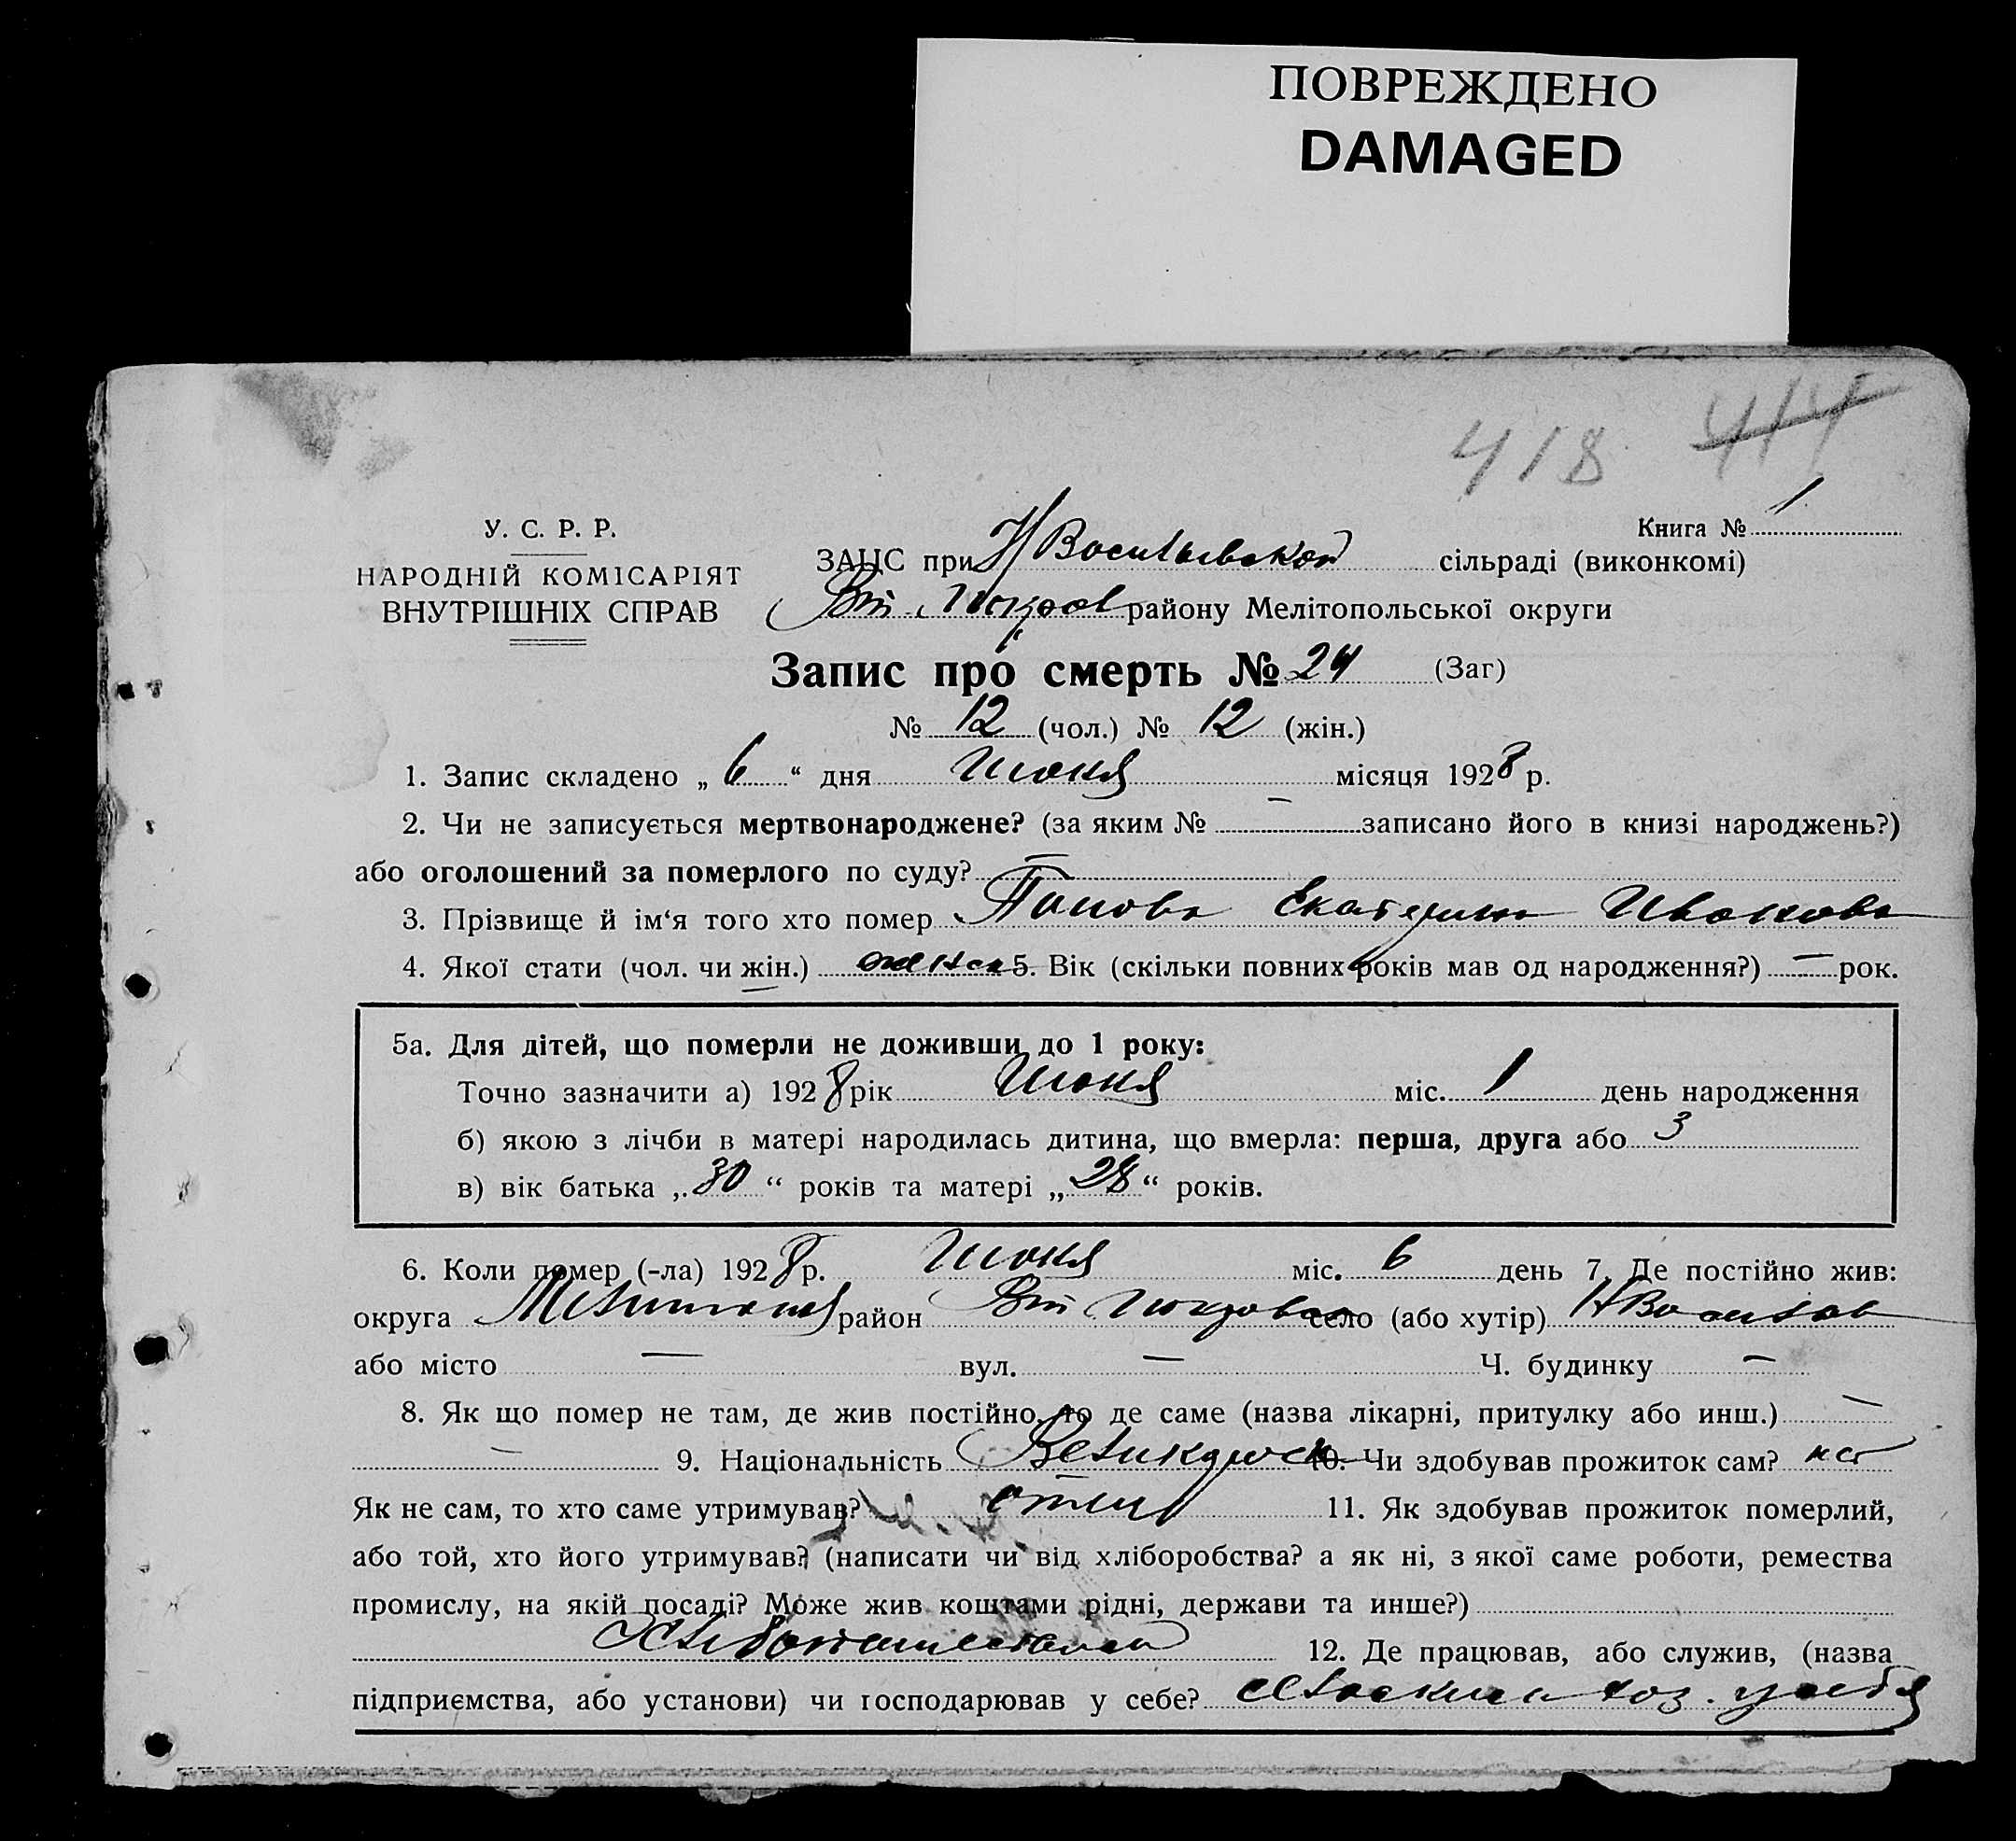 ПОВРЕЖДЕНО
DAMAGED
418 414
У. С. Р. Р.
Книга № 1
НАРОДНІЙ КОМІСАРІЯТ
ВНУТРІШНІХ СПРАВ
ЗАЦС при Н Васильевской сільраді (виконкомі)
району Мелітопольської округи
Запис про смерть № 24 (Заг)
№ 12 (чол.) № 12 (жін.)
1. Запис складено „ 6 “ дня Июня місяця 1928 р.
2. Чи не записується мертвонароджене? (за яким № — записано його в книзі народжень?)
або оголошений за померлого по суду? —
3. Прізвище й ім‘я того хто помер Попова Екатерина Ивановна
4. Якої стати (чол. чи жін.) женск 5. Вік (скільки повних років мав од народження?) — рок.
5а. Для дітей, що померли не доживши до 1 року:
Точно зазначити а) 1928 рік Июня міс. 1 день народження
б) якою з лічби в матері народилась дитина, що вмерла: перша, друга або 3
в) вік батька „ 30 “ років та матері „ 28 “ років.
6. Коли помер (-ла) 1928 р. Июня міс. 6 день 7. Де постійно жив:
округа Мелитопол район село (або хутір) Н Васильев
або місто — вул. — Ч. будинку —
8. Як що помер не там, де жив постійно, то де саме (назва лікарні, притулку або инш.) —
— 9. Національність Великорусск 10. Чи здобував прожиток сам? нет
Як не сам, то хто саме утримував? отец 11. Як здобував прожиток померлий,
або той, хто його утримував? (написати чи від хліборобства? а як ні, з якої саме роботи, ремества
промислу, на якій посаді? Може жив коштами рідні, держави та инше?)
Хлебопашеством 12. Де працював, або служив, (назва
підприємства, або установи) чи господарював у себе? хоз. у себя